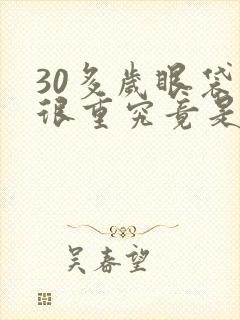 30多歲眼袋
很重究竟是
吴春望